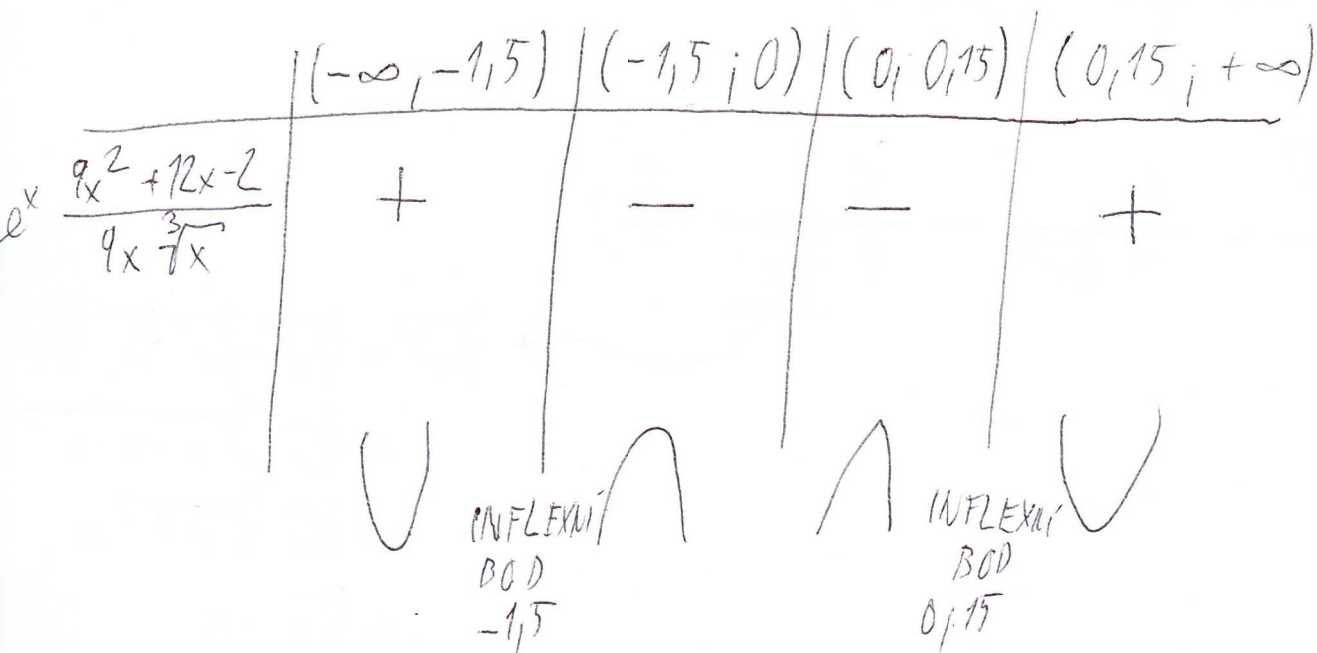 (-∞, -1,5) (-1,5 ; 0) (0; 0,15) (0,15 ; +∞)
e^x (9x^2 + 12x - 2)/(9x ∛x) + - - +
INFLEXNÍ BOD -1,5
INFLEXNÍ BOD 0,15